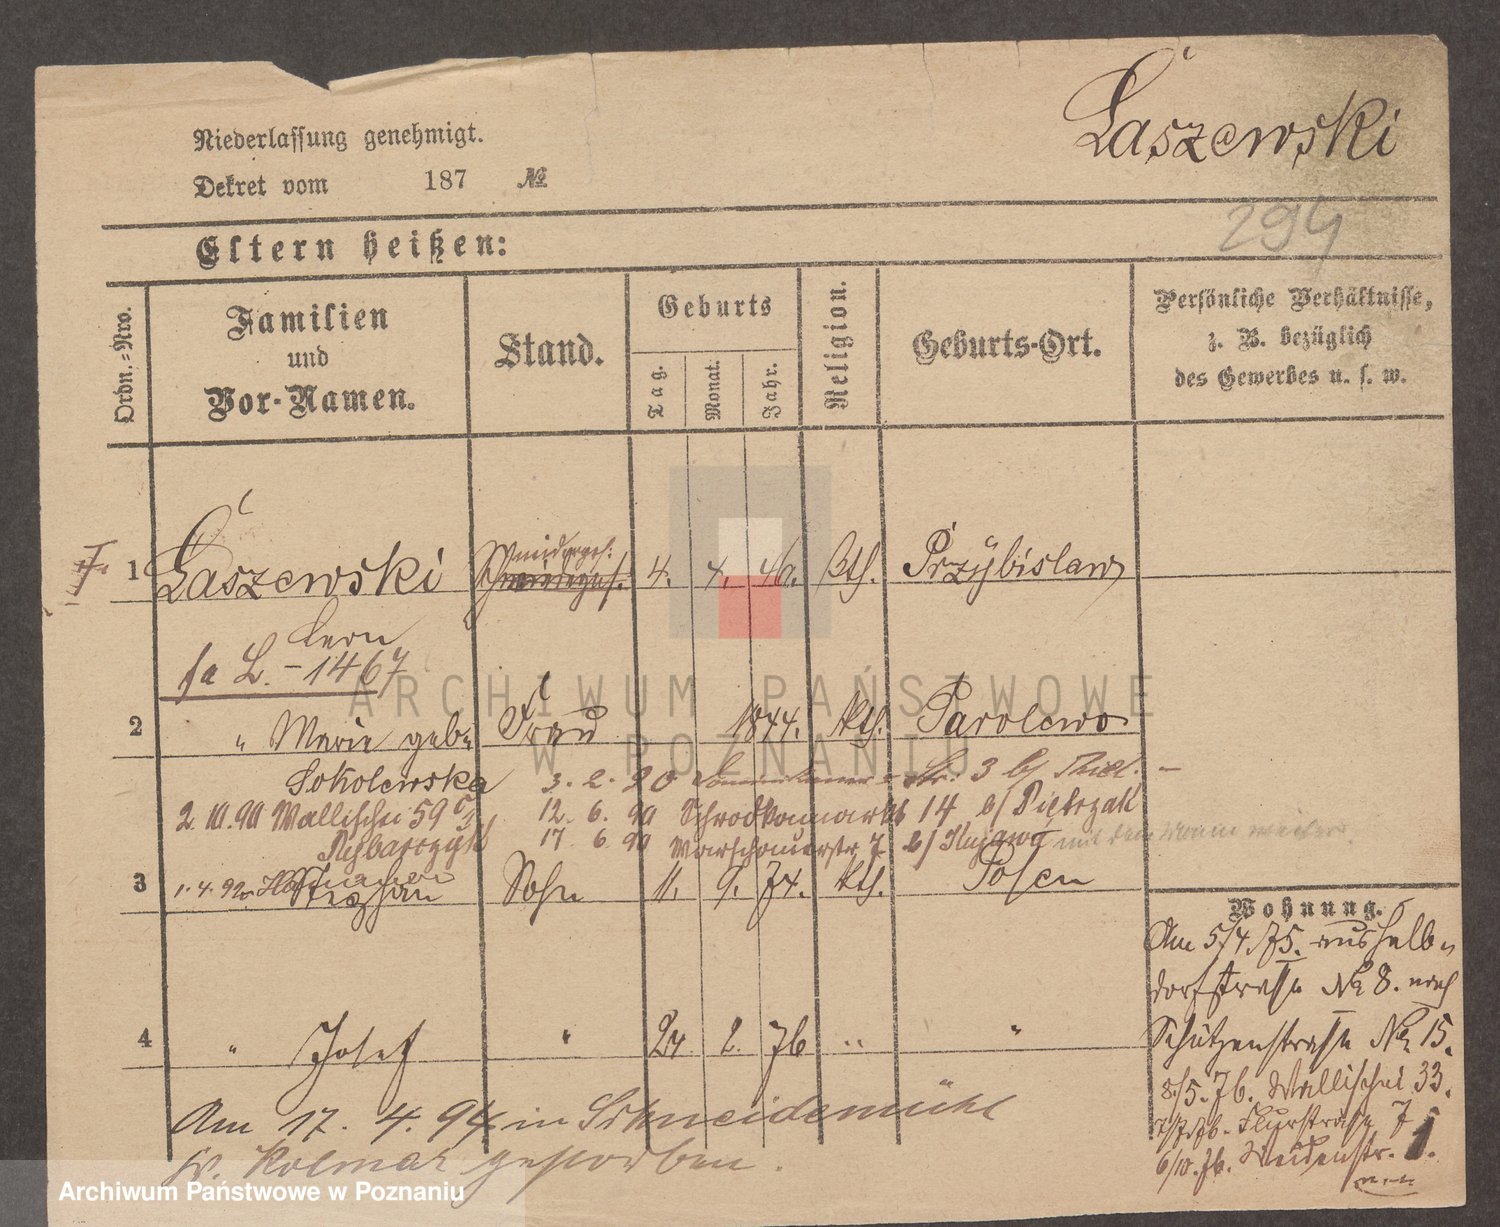 Łaszewski
Niederlassung genehmigt.
Dekret vom 187 №
294
Eltern heißen:
Ordn.=Nro.
Familien
und
Vor-Namen.
Stand.
Geburts
Tag.
Monat.
Jahr.
Religion.
Geburts-Ort.
Persönliche Verhältnisse,
z. B. bezüglich
des Gewerbes u. s. w.
1 Łaszewski 4. 4. Kth. Przybislaw
fa L. - 1467
2 " Marie geb. Frau 1844. kth. Parolewo
Sokolewska 3. 2. 90 Str. 3 b/
2.10.90 Wallischei 59 12. 6. 90 Schrodkamarkt 14 b/ Pietrzak
Rybarczyk 17. 6. 90 Warschauerstr. 7 b/ Kujawa mit dem Mann
3 1.4.92 Stephan Sohn 11. 9. 74. kth. Posen
Wohnung.
Am 5/4. 75. aus Halb-
dorfstrasse No 8. nach
Schützenstrasse No 15.
8/5. 76. Wallischei 33.
Flurstrasse 7
6/10. 76. Weidenstr. 1.
4 " Josef " 24 2. 76 " "
Am 17. 4. 94 in Schneidemühl
Kr. Kolmar gestorben.
ARCHIWUM PAŃSTWOWE
W POZNANIU
Archiwum Państwowe w Poznaniu